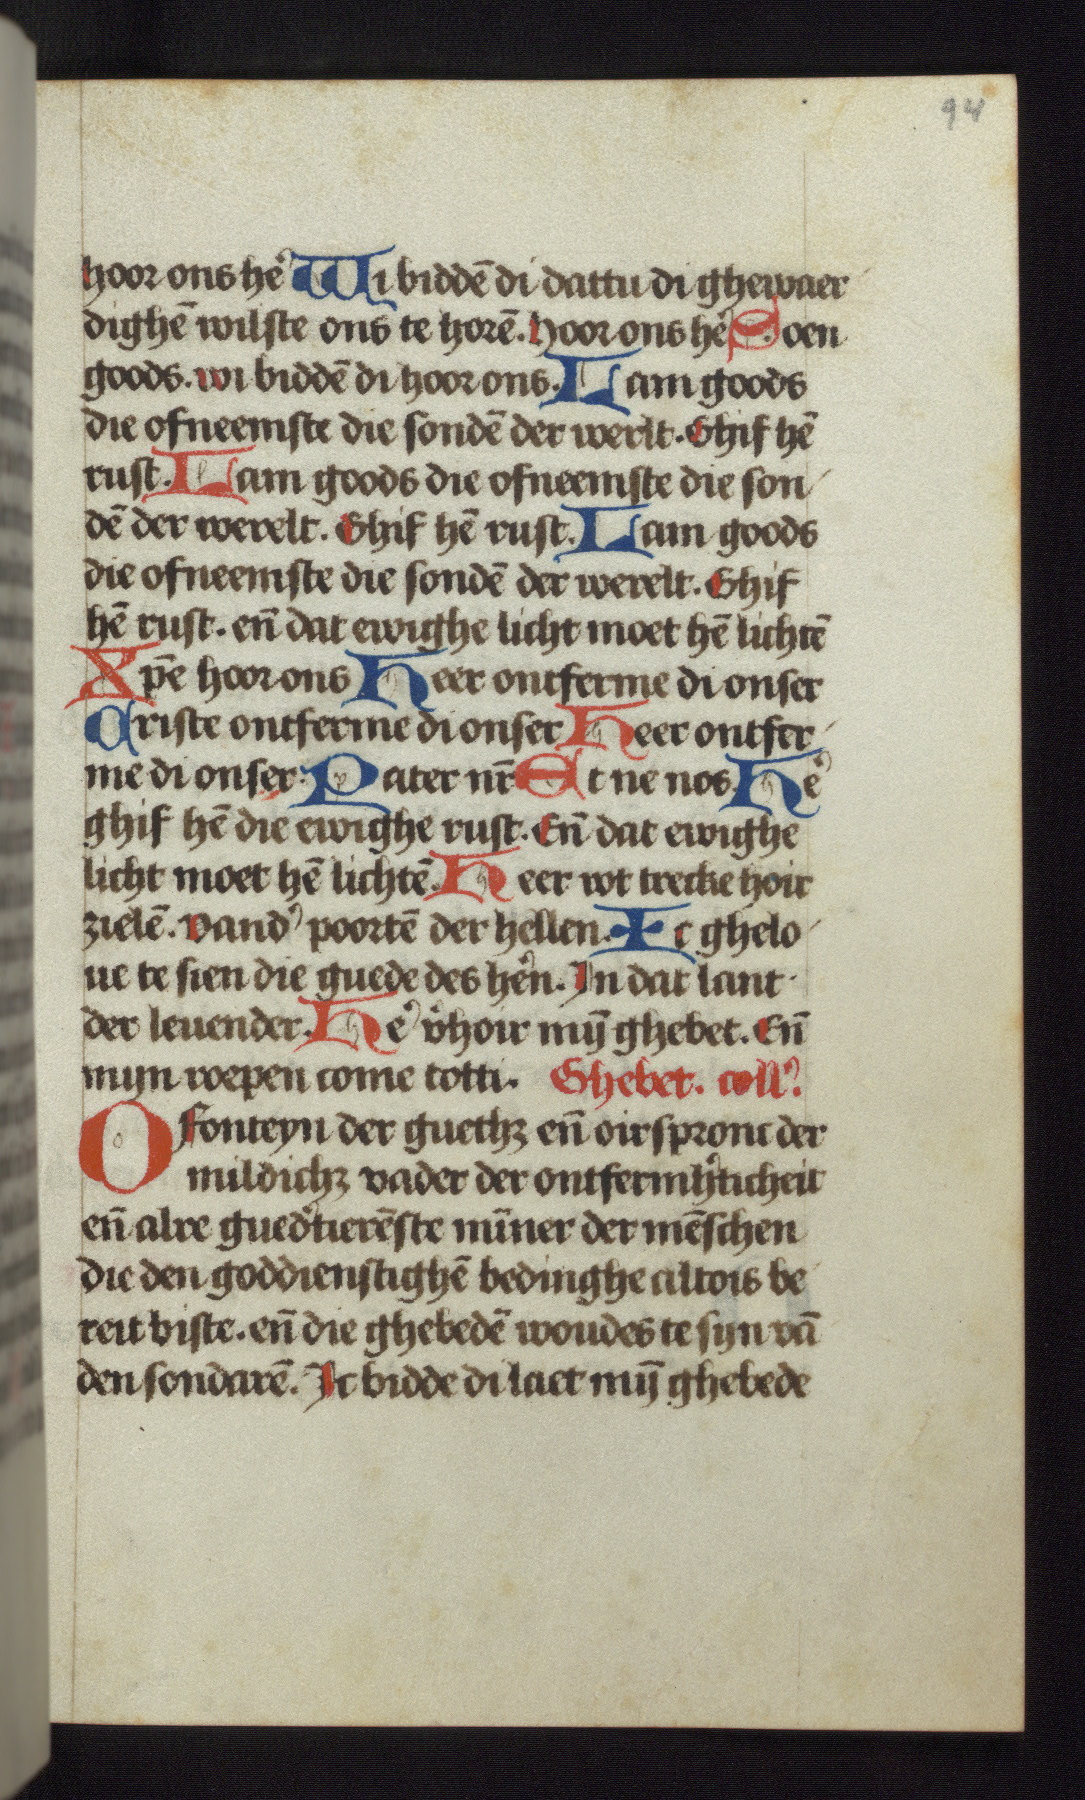 94
hoor ons he᷑ Wi biddē di dattu di ghewaer
dighē wilste ons te horē. Hoor ons he᷑ Soen
goods. wi biddē di hoor ons. Lam goods
die ofneemste die sondē der werlt. Ghif hē
rust. Lam goods die ofneemste die son
dē der werelt. Ghif hē rust. Lam goods
die ofneemste die sondē der werelt. Ghif
hē rust. en̄ dat ewighe licht moet hē lichtē
Xp̄e hoor ons Heer ontferme di onser
Criste ontferme di onser Heer ontfer
me di onser. Pater nr̄ Et ne nos. He᷑
ghif hē die ewighe rust. En̄ dat ewighe
licht moet hē lichtē. Heer wt trecke hoir
zielē. vand᷑ poortē der hellen. Ic ghelo
ue te sien die guede des he᷑n. In dat lant
der leuender. He᷑ v᷑hoir mȳ ghebet. En̄
mijn roepen come totti. Ghebet. coll᷑.
O fonteyn der guethꝫ en̄ oirspronc der
mildichꝫ vader der ontfermh᷑ticheit
en̄ alre gued᷑tierēste mīner der mēschen
die den goddienstighē bedinghe altois be
reit biste. en̄ die ghebedē woudes te syn vā
den sondarē. Ic bidde di laet mȳ ghebede